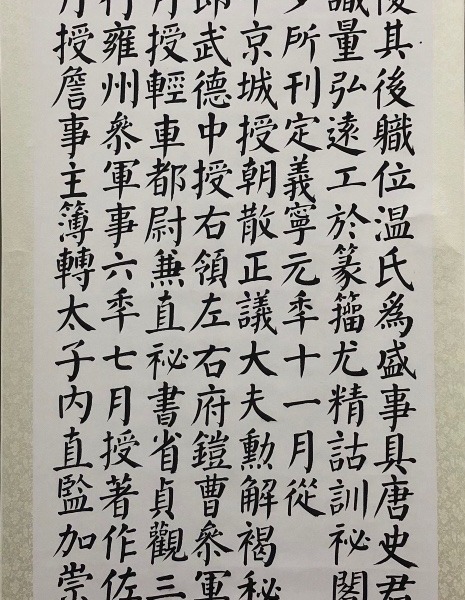 其後職位温氏為盛事具唐史君
識量弘遠工於篆籀尤精詁訓祕閣
所刊定義寧元秊十一月從
京城授朝散正議大夫勳解褐秘
郎武德中授右領左右府鎧曹叅軍
月授輕車都尉兼直祕書省貞觀三
行雍州叅軍事六秊七月授著作佐
月授詹事主簿轉太子内直監加崇